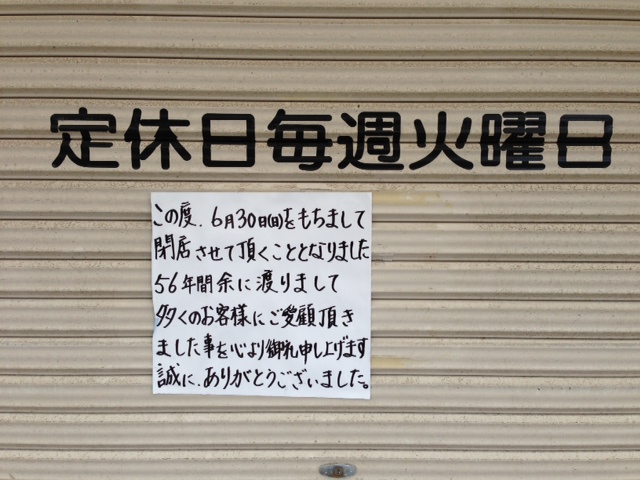 定休日毎週火曜日
この度、6月30日(日)をもちまして
閉店させて頂くこととなりました
56年間余に渡りまして
多くのお客様にご愛顧頂き
ました事を心より御礼申し上げます
誠に、ありがとうございました。